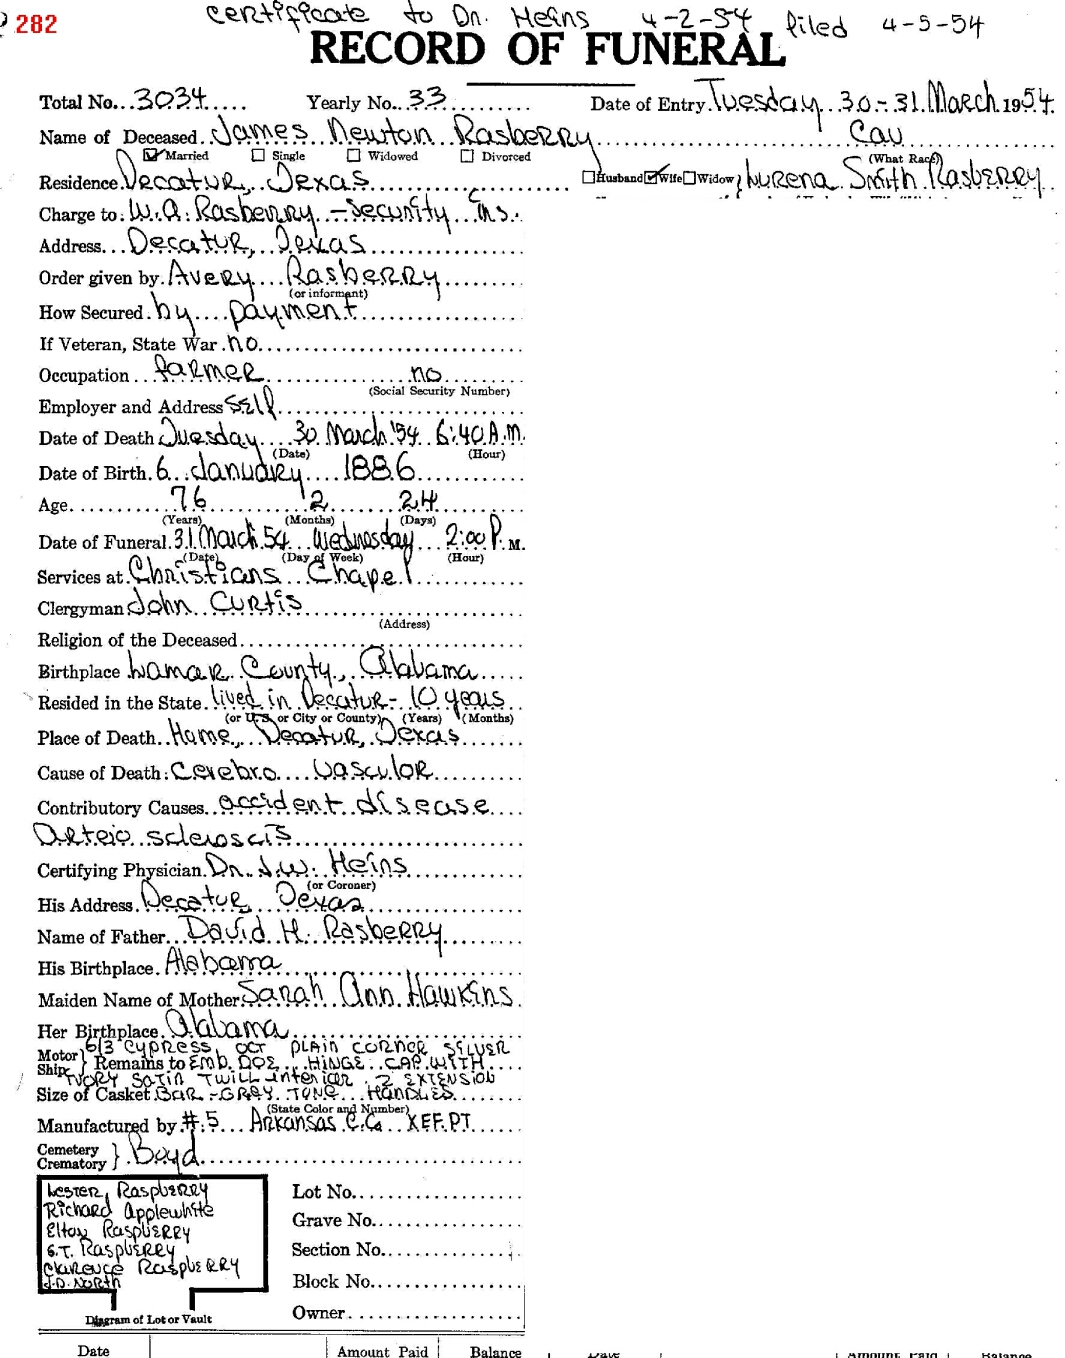 certificate to Dr. Heins 4-2-54 filed 4-5-54
282
RECORD OF FUNERAL
Total No. 3034 Yearly No. 33 Date of Entry Tuesday 30-31 March 1954
Name of Deceased James Newton Rasberry Cau
Married Single Widowed Divorced (What Race)
Residence Decatur, Texas Husband Wife Widow } Lurena Smith Rasberry
Charge to: W.A. Rasberry - Security Ins.
Address Decatur, Texas
Order given by Avery Rasberry
(or informent)
How Secured by payment
If Veteran, State War no
Occupation farmer no
(Social Security Number)
Employer and Address Self
Date of Death Tuesday 30 March '54 6:40 A.M.
(Date) (Hour)
Date of Birth 6 January 1886
Age 76 2 24
(Years) (Months) (Days)
Date of Funeral 31 March 54 Wednesday 2:00 P. M.
(Date) (Day of Week) (Hour)
Services at Christians Chapel
Clergyman John Curtis
(Address)
Religion of the Deceased
Birthplace Lamar County, Alabama
Resided in the State lived in Decatur - 10 years
(or U.S. or City or County) (Years) (Months)
Place of Death Home, Decatur, Texas
Cause of Death: Cerebro Vasculor
Contributory Causes accident disease
Arteio scleroscis
Certifying Physician Dr. J.W. Heins
(or Coroner)
His Address Decatur, Texas
Name of Father David H. Rasberry
His Birthplace Alabama
Maiden Name of Mother Sarah Ann Hawkins
Her Birthplace Alabama
6/3 Cypress Oct Plain Corner Silver
Motor Ship } Remains to Emb. Doe Hinge Cap With
Ivory Satin Twill interior 2 Extension
Size of Casket Bar - Grey Tone Handles
(State Color and Number)
Manufactured by #5 Arkansas C. Co XEF.PT
Cemetery Crematory } Boyd
Lester Raspberry
Richard Applewhite
Elton Raspberry
G.T. Raspberry
Clarence Raspberry
J.D. North
Lot No.
Grave No.
Section No.
Block No.
Owner
Diagram of Lot or Vault
Date Amount Paid Balance Date Amount Paid Balance